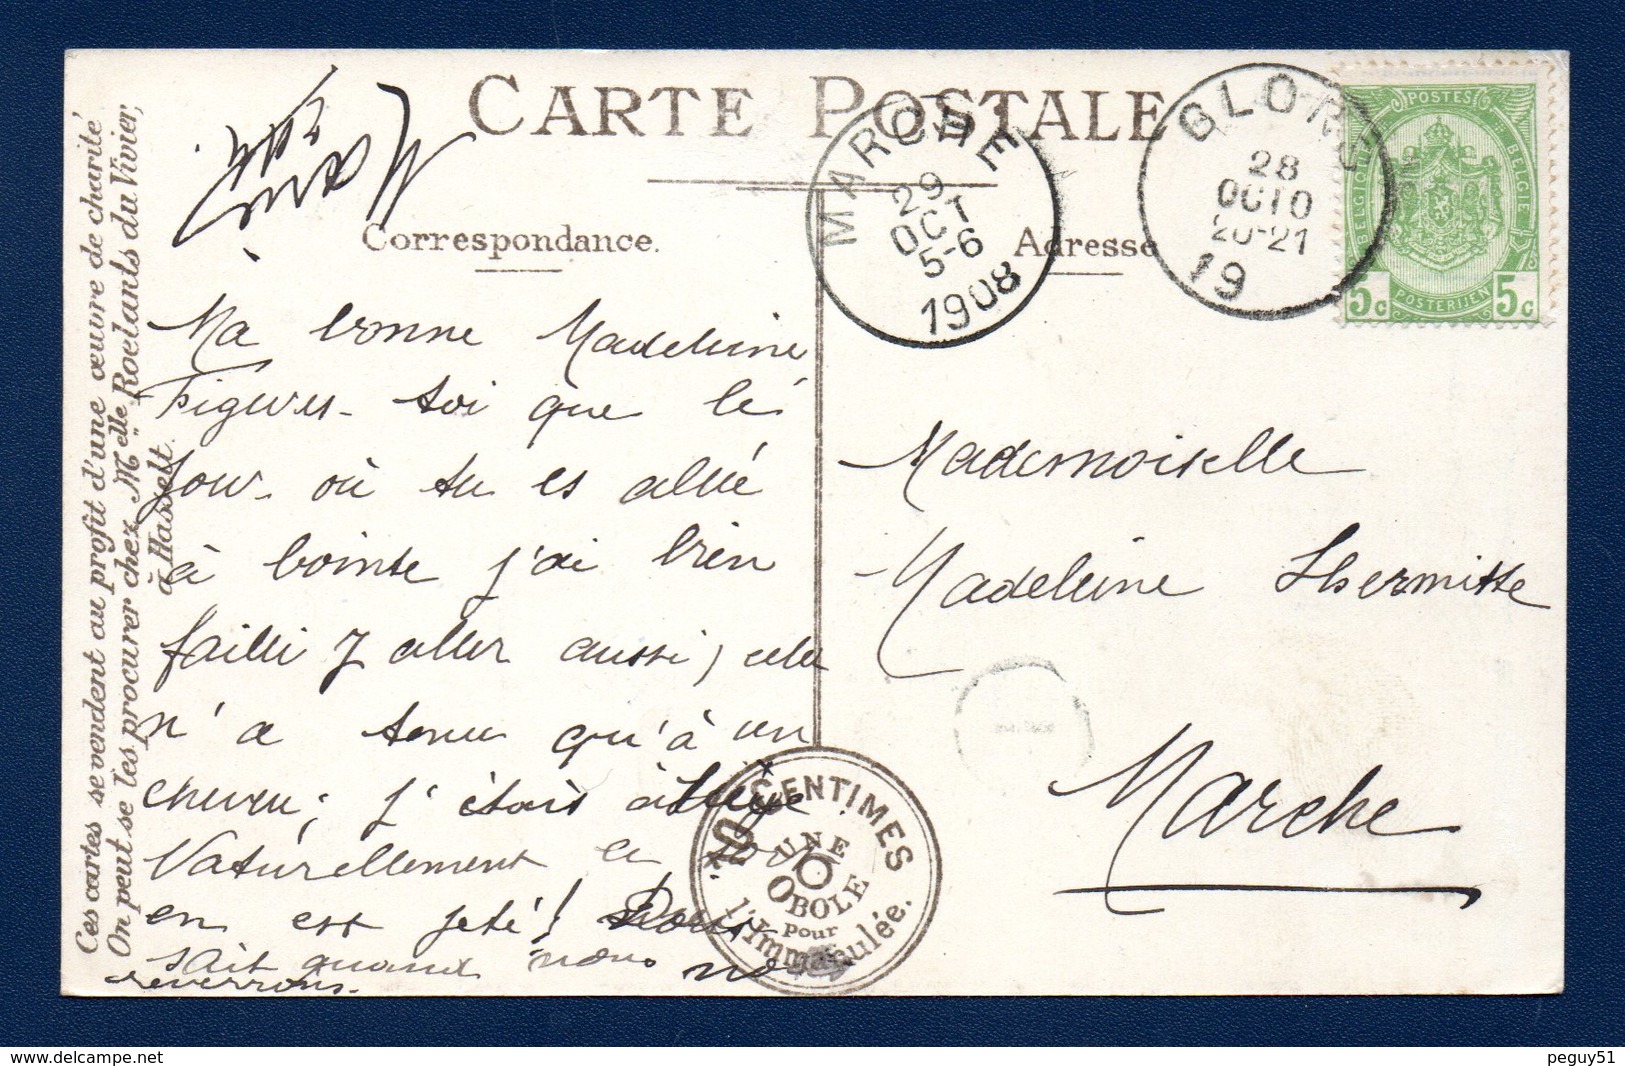 CARTE POSTALE
Correspondance.
Adresse
MARCHE
29
OCT
5-6
1908
28
OCTO
20-21
19
POSTES
BELGIQUE
BELGIE
POSTERIJEN
5c 5c
Ces cartes se vendent au profit d'une œuvre de charité
On peut se les procurer chez Melle Roelants du Vivier,
à Hasselt.
Ma bonne Madeleine
Figures-toi que le
jour où tu es allée
à                 j'ai bien
failli y aller aussi, cela
n'a tenu qu'à un
cheveu; j'étais à
Naturellement le
en est jeté!
sait quand nous nous
reverrons.
Mademoiselle
Madeleine Lhermitte
Marche
10 CENTIMES
UNE
OBOLE
pour
l'Immaculée.
peguy51
www.delcampe.net